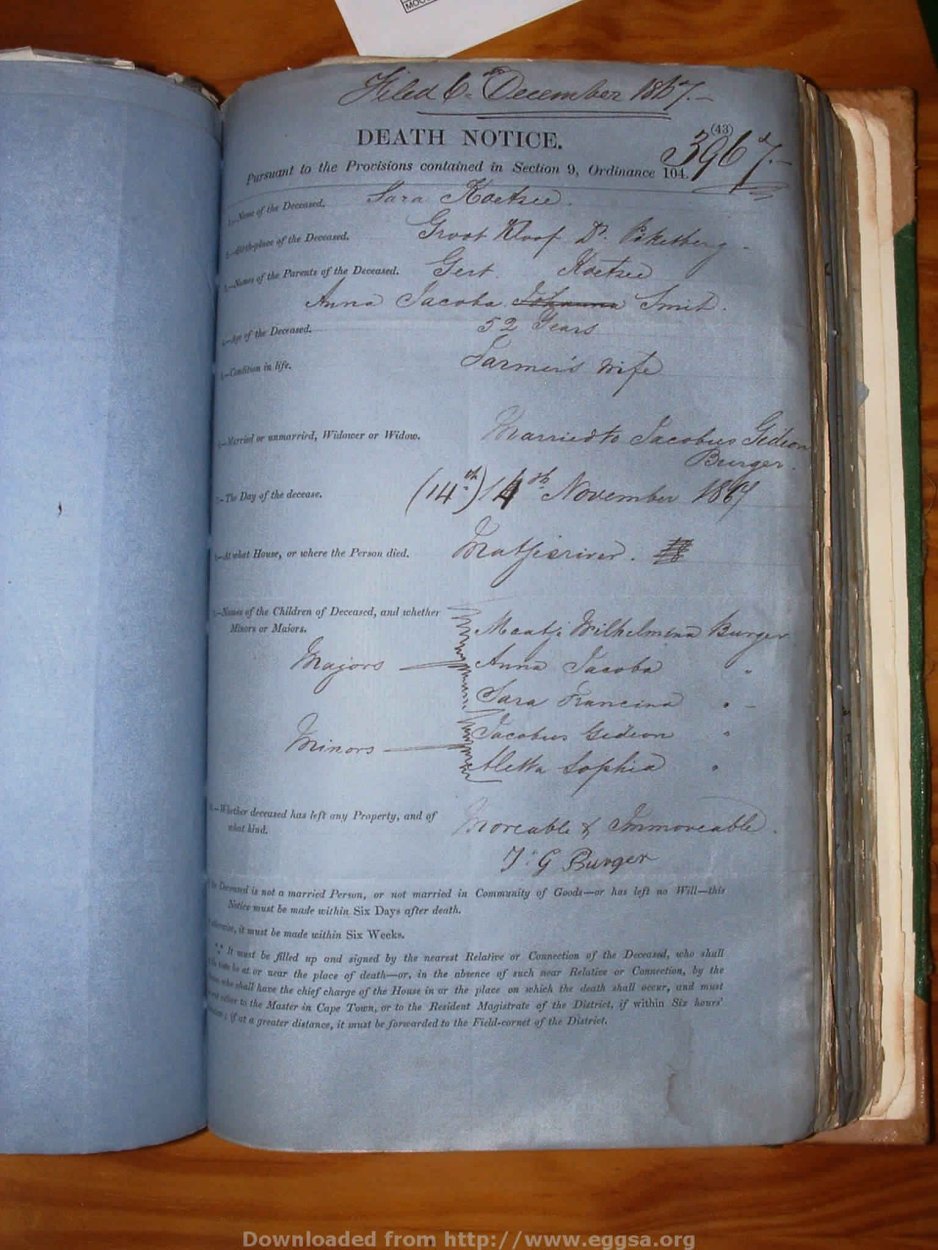 MOO
Filed 6th December 1867.-
(43)
DEATH NOTICE.
3967.-
Pursuant to the Provisions contained in Section 9, Ordinance 104.
1.—Name of the Deceased. Sara Koetzee.
2.—Birth-place of the Deceased. Groot Kloof Dn. Piketberg -
3.—Names of the Parents of the Deceased. Gert Koetzee
Anna Jacoba Johanna Smit.
4.—Age of the Deceased. 52 Years
5.—Condition in life. Farmer's wife
6.—Married or unmarried, Widower or Widow. Married to Jacobus Gideon
Burger.
7.—The Day of the decease. (14th) 14th November 1867
8.—At what House, or where the Person died. Matjesriver.
9.—Names of the Children of Deceased, and whether
Minors or Majors.
Maatji Wilhelmina Burger
Majors — Anna Jacoba "
Sara Francina " -
Jacobus Gideon "
Minors — Aletta Sophia "
10.—Whether deceased has left any Property, and of
what kind. Moveable & Immoveable.
J. G Burger
the Deceased is not a married Person, or not married in Community of Goods—or has left no Will—this
Notice must be made within Six Days after death.
otherwise, it must be made within Six Weeks.
It must be filled up and signed by the nearest Relative or Connection of the Deceased, who shall
be at or near the place of death—or, in the absence of such near Relative or Connection, by the
who shall have the chief charge of the House in or the place on which the death shall occur, and must
either to the Master in Cape Town, or to the Resident Magistrate of the District, if within Six hours'
; if at a greater distance, it must be forwarded to the Field-cornet of the District.
Downloaded from http://www.eggsa.org